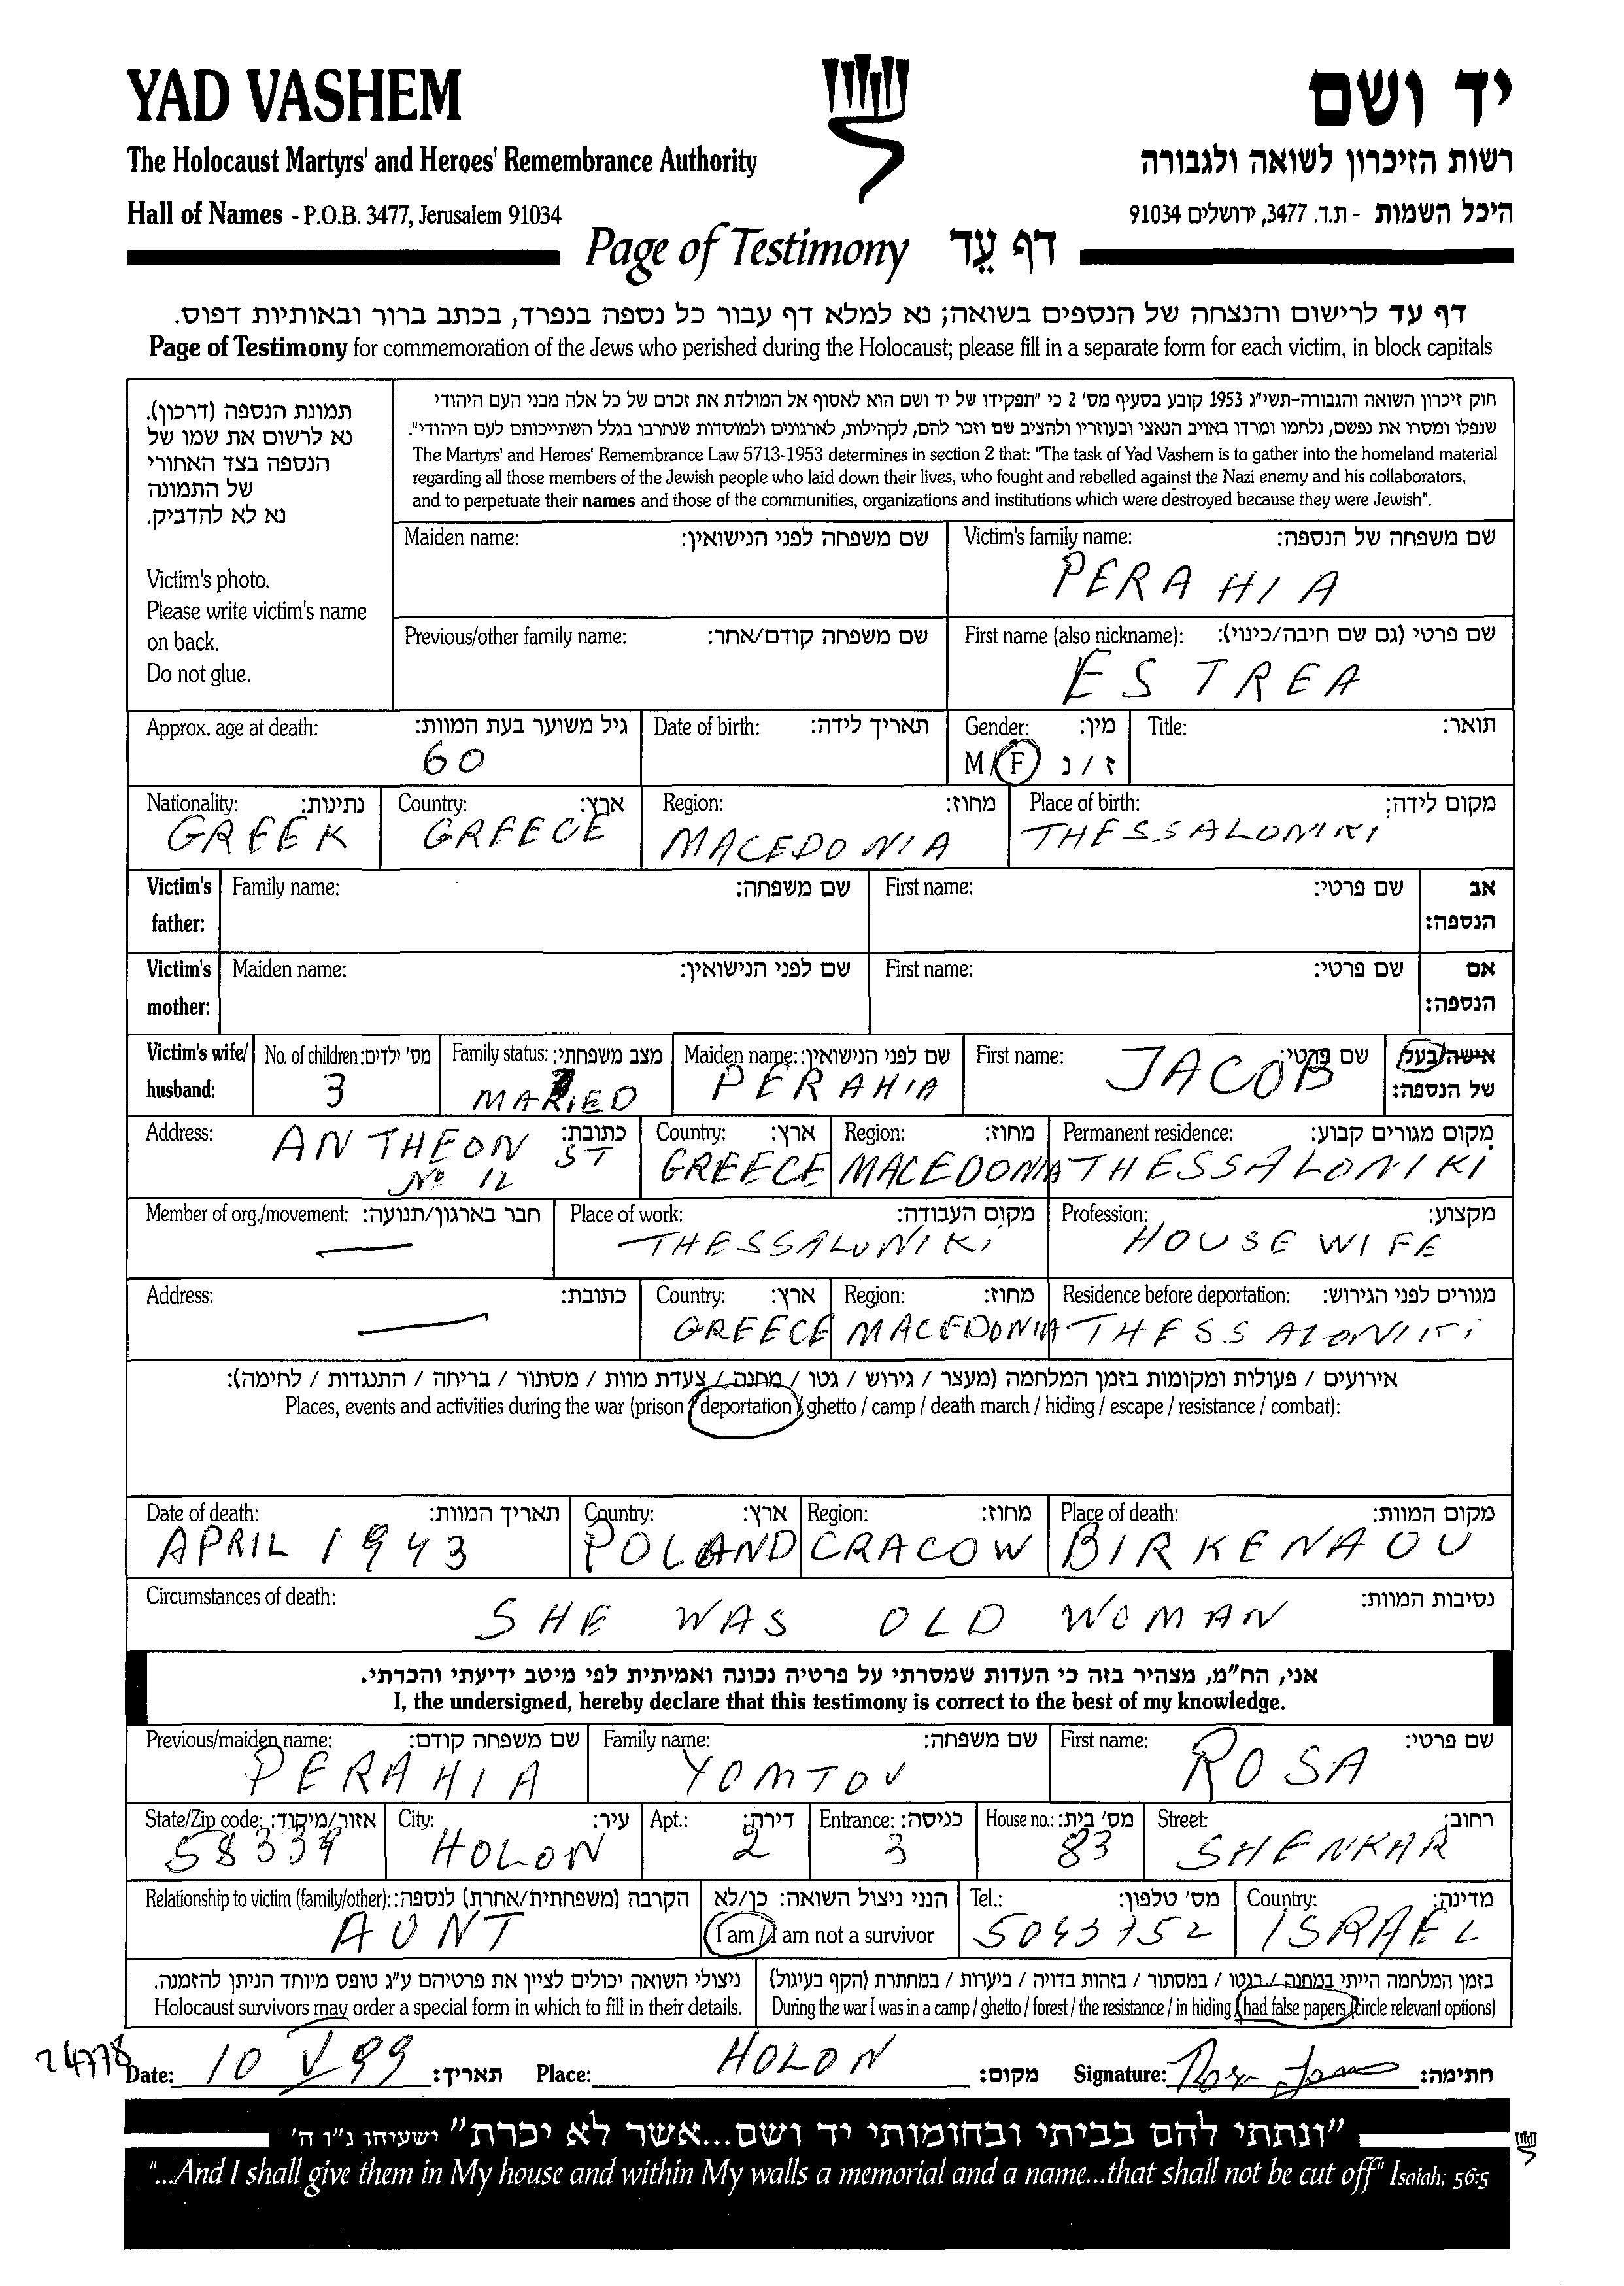 YAD VASHEM
יד ושם
The Holocaust Martyrs' and Heroes' Remembrance Authority
רשות הזיכרון לשואה ולגבורה
Hall of Names - P.O.B. 3477, Jerusalem 91034
היכל השמות - ת.ד. 3477, ירושלים 91034
Page of Testimony דף עֵד
דף עד לרישום והנצחה של הנספים בשואה; נא למלא דף עבור כל נספה בנפרד, בכתב ברור ובאותיות דפוס.
Page of Testimony for commemoration of the Jews who perished during the Holocaust; please fill in a separate form for each victim, in block capitals
תמונת הנספה (דרכון).
נא לרשום את שמו של
הנספה בצד האחורי
של התמונה
נא לא להדביק.
Victim's photo.
Please write victim's name
on back.
Do not glue.
חוק זיכרון השואה והגבורה-תשי"ג 1953 קובע בסעיף מס' 2 כי "תפקידו של יד ושם הוא לאסוף אל המולדת את זכרם של כל אלה מבני העם היהודי
שנפלו ומסרו את נפשם, נלחמו ומרדו באויב הנאצי ובעוזריו ולהציב שם וזכר להם, לקהילות, לארגונים ולמוסדות שנחרבו בגלל השתייכותם לעם היהודי".
The Martyrs' and Heroes' Remembrance Law 5713-1953 determines in section 2 that: "The task of Yad Vashem is to gather into the homeland material
regarding all those members of the Jewish people who laid down their lives, who fought and rebelled against the Nazi enemy and his collaborators,
and to perpetuate their names and those of the communities, organizations and institutions which were destroyed because they were Jewish".
Maiden name: שם משפחה לפני הנישואין:
Victim's family name: שם משפחה של הנספה:
PERAHIA
Previous/other family name: שם משפחה קודם/אחר:
First name (also nickname): שם פרטי (גם שם חיבה/כינוי):
ESTREA
Approx. age at death: גיל משוער בעת המוות:
60
Date of birth: תאריך לידה:
Gender: מין:
M/F ז/נ
Title: תואר:
Nationality: נתינות:
GREEK
Country: ארץ:
GREECE
Region: מחוז:
MACEDONIA
Place of birth: מקום לידה:
THESSALONIKI
Victim's father: Family name: שם משפחה: First name: שם פרטי: אב הנספה:
Victim's mother: Maiden name: שם לפני הנישואין: First name: שם פרטי: אם הנספה:
Victim's wife/husband:
No. of children: מס' ילדים:
3
Family status: מצב משפחתי:
MARIED
Maiden name: שם לפני הנישואין:
PERAHIA
First name: שם פרטי:
JACOB
אישה/בעל של הנספה:
Address: כתובת:
ANTHEON ST
No 12
Country: ארץ:
GREECE
Region: מחוז:
MACEDONIA
Permanent residence: מקום מגורים קבוע:
THESSALONIKI
Member of org./movement: חבר בארגון/תנועה:
Place of work: מקום העבודה:
THESSALONIKI
Profession: מקצוע:
HOUSEWIFE
Address: כתובת:
Country: ארץ:
GREECE
Region: מחוז:
MACEDONIA
Residence before deportation: מגורים לפני הגירוש:
THESSALONIKI
אירועים / פעולות ומקומות בזמן המלחמה (מעצר / גירוש / גטו / מחנה / צעדת מוות / מסתור / בריחה / התנגדות / לחימה):
Places, events and activities during the war (prison / deportation / ghetto / camp / death march / hiding / escape / resistance / combat):
Date of death: תאריך המוות:
APRIL 1943
Country: ארץ:
POLAND
Region: מחוז:
CRACOW
Place of death: מקום המוות:
BIRKENAOU
Circumstances of death: נסיבות המוות:
SHE WAS OLD WOMAN
אני, הח"מ, מצהיר בזה כי העדות שמסרתי על פרטיה נכונה ואמיתית לפי מיטב ידיעתי והכרתי.
I, the undersigned, hereby declare that this testimony is correct to the best of my knowledge.
Previous/maiden name: שם משפחה קודם:
PERAHIA
Family name: שם משפחה:
YOMTOV
First name: שם פרטי:
ROSA
State/Zip code: אזור/מיקוד:
58339
City: עיר:
HOLON
Apt.: דירה:
2
Entrance: כניסה:
3
House no.: מס' בית:
83
Street: רחוב:
SHENKAR
Relationship to victim (family/other): הקרבה (משפחתית/אחרת) לנספה:
AUNT
הנני ניצול השואה: כן/לא
I am/I am not a survivor
Tel.: מס' טלפון:
5043752
Country: מדינה:
ISRAEL
ניצולי השואה יכולים לציין את פרטיהם ע"ג טופס מיוחד הניתן להזמנה.
Holocaust survivors may order a special form in which to fill in their details.
בזמן המלחמה הייתי במחנה / בגטו / במסתור / בזהות בדויה / ביערות / במחתרת (הקף בעיגול)
During the war I was in a camp / ghetto / forest / the resistance / in hiding / had false papers (circle relevant options)
24778
Date: 10 V 99 תאריך: Place: HOLON מקום: Signature: חתימה:
"ונתתי להם בביתי ובחומותי יד ושם...אשר לא יכרת" ישעיהו נ"ו ה'
"...And I shall give them in My house and within My walls a memorial and a name...that shall not be cut off" Isaiah; 56:5